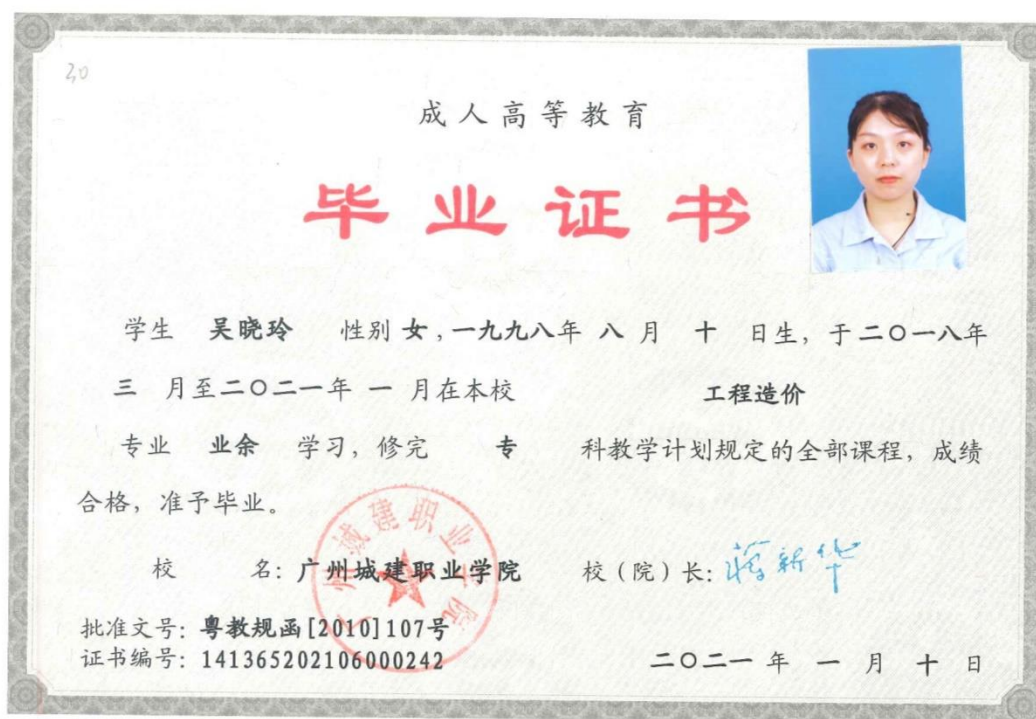 30
成人高等教育
毕业证书
学生 吴晓玲 性别 女，一九九八年 八 月 十 日生，于二〇一八年
三 月至二〇二一年 一 月在本校 工程造价
专业 业余 学习，修完 专 科教学计划规定的全部课程，成绩
合格，准予毕业。
校 名：广州城建职业学院 校（院）长：蒋新华
广州城建职业学院
批准文号：粤教规函[2010]107号
证书编号：141365202106000242
二〇二一 年 一 月 十 日